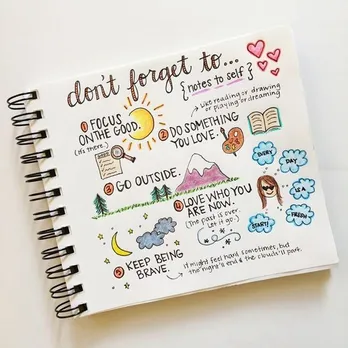 don't forget to...
{notes to self}
Like reading or drawing
or playing or dreaming
1 FOCUS
ON THE GOOD.
(it's there.)
2 DO SOMETHING
YOU LOVE.
3 GO OUTSIDE.
4 LOVE WHO YOU
ARE NOW.
(The past is over.
Let it go.)
EVERY
DAY
IS A
FRESH
START!
5 KEEP BEING
BRAVE.
it might feel hard sometimes, but
the night's end & the clouds'll part.